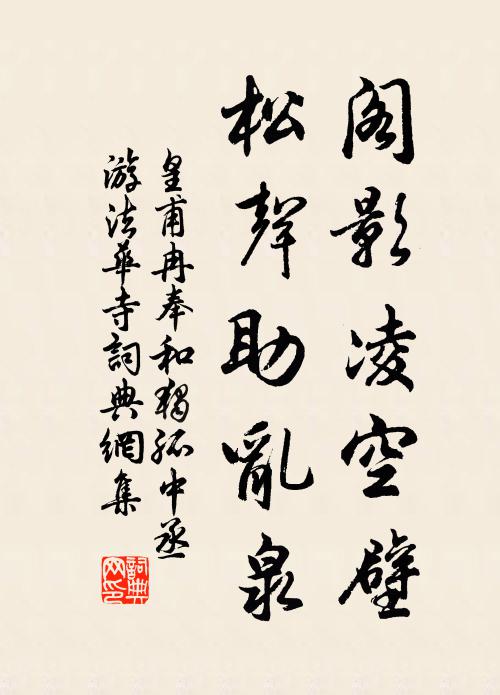 阁影凌空壁
松聲助亂泉
皇甫冉奉和獨孤中丞
游法華寺詞典網集
詞典
网印